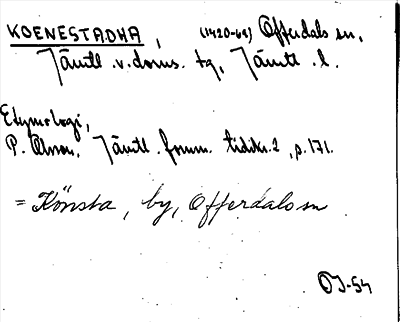 KOENESTADHA, (1420-60) Offerdals sn,
Jämtl. v. doms. tg, Jämtl. l.
Etymologi,
P. Olsson, Jämtl. fornm. tidskr. 2, s. 171.
= Könsta, by, Offerdals sn
OJ-54